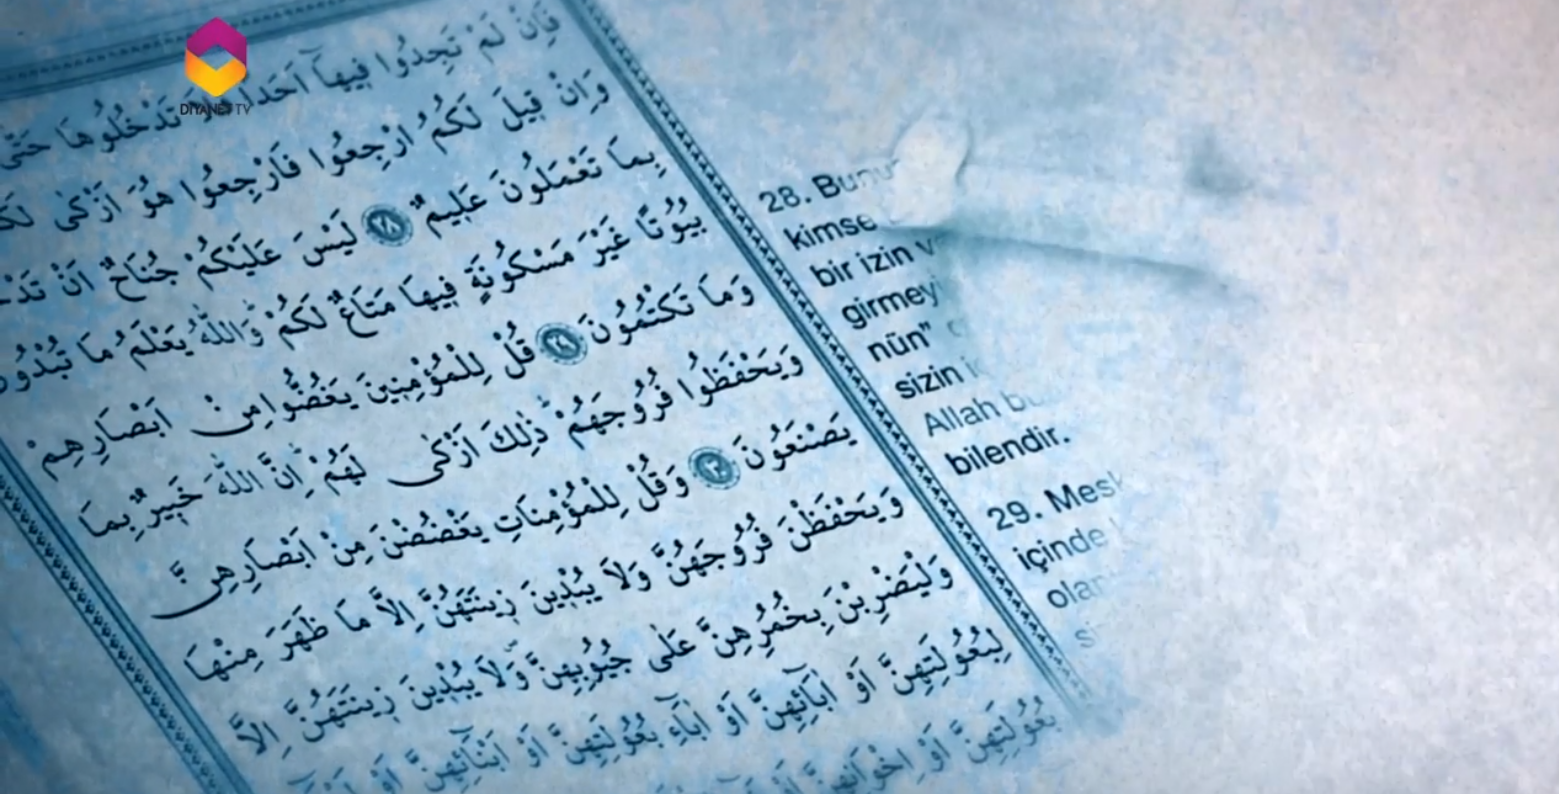 DİYANET TV
فَاِنْ لَمْ تَجِدُوا فٖيهَٓا اَحَدًا تَدْخُلُوهَا حَتّٰى
وَاِنْ قٖيلَ لَكُمُ ارْجِعُوا فَارْجِعُوا هُوَ اَزْكٰى
بِمَا تَعْمَلُونَ عَلٖيمٌ ﴿٢٨﴾ لَيْسَ عَلَيْكُمْ جُنَاحٌ اَنْ
بُيُوتًا غَيْرَ مَسْكُونَةٍ فٖيهَا مَتَاعٌ لَكُمْ وَاللّٰهُ يَعْلَمُ مَا
وَمَا تَكْتُمُونَ ﴿٢٩﴾ قُلْ لِلْمُؤْمِنٖينَ يَغُضُّوا مِنْ اَبْصَارِهِمْ
وَيَحْفَظُوا فُرُوجَهُمْ ذٰلِكَ اَزْكٰى لَهُمْ اِنَّ اللّٰهَ خَبٖيرٌ بِمَا
يَصْنَعُونَ ﴿٣٠﴾ وَقُلْ لِلْمُؤْمِنَاتِ يَغْضُضْنَ مِنْ اَبْصَارِهِنَّ
وَيَحْفَظْنَ فُرُوجَهُنَّ وَلَا يُبْدٖينَ زٖينَتَهُنَّ اِلَّا مَا ظَهَرَ مِنْهَا
وَلْيَضْرِبْنَ بِخُمُرِهِنَّ عَلٰى جُيُوبِهِنَّ وَلَا يُبْدٖينَ زٖينَتَهُنَّ اِلَّا
لِبُعُولَتِهِنَّ اَوْ اٰبَٓائِهِنَّ اَوْ اٰبَٓاءِ بُعُولَتِهِنَّ اَوْ اَبْنَٓائِهِنَّ اَوْ
بُعُولَتِهِنَّ اَوْ اِخْوَانِهِنَّ
28.
kimse
bir izin
girmey
nün”
sizin
Allah
bilendir.
29.
içinde